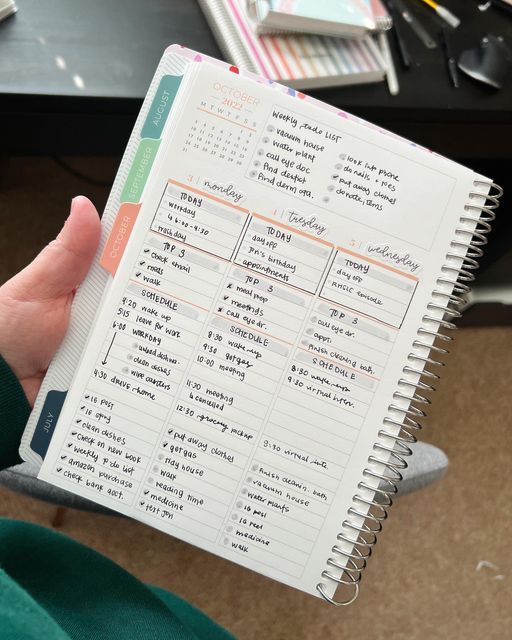 AUGUST
SEPTEMBER
OCTOBER
JULY
OCTOBER
2022
M T W T F S S
Weekly to do LIST
vacuum house
water plant
call eye doc
find dentist
find derm
look into phone
do nails + toes
put away clothes
donate items
3 monday
TODAY
workday
6:00-4:30
trash day
TOP 3
check email
meds
walk
SCHEDULE
4:20 wake up
5:15 leave for work
6:00 WORKDAY
clean dishes
4:30 drive home
IG post
IG story
clean dishes
check on new book
weekly to do list
amazon purchase
check bank acct.
4 tuesday
TODAY
day off
Jen's birthday
appointments
TOP 3
meal prep
meetings
call eye dr.
SCHEDULE
8:30 wake up
9:30 get gas
10:00 meeting
11:30 meeting
cancelled
12:30 grocery pickup
put away clothes
get gas
tidy house
walk
reading time
medicine
text Jen
5 wednesday
TODAY
day off
episode
TOP 3
call eye dr.
appt.
finish cleaning bath.
SCHEDULE
8:30 wake up
9:30 virtual
3:30 virtual
finish cleanin. bath
vacuum house
water plants
IG post
IG reel
medicine
walk